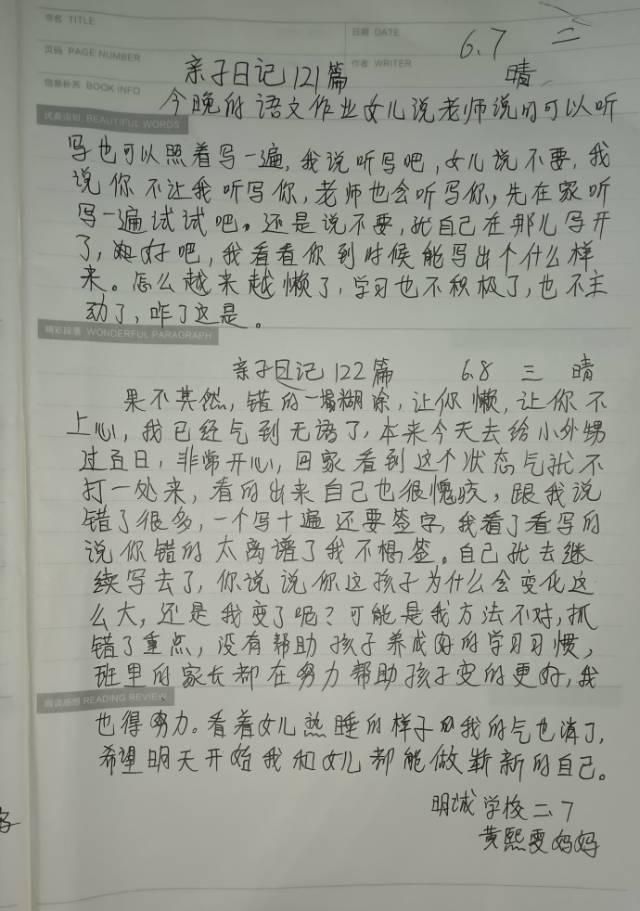 书名 TITLE
日期 DATE
6.7 二
页码 PAGE NUMBER
作者 WRITER
亲子日记121篇 晴
信息补充 BOOK INFO
今晚的语文作业女儿说老师说的可以听
优美词句 BEAUTIFUL WORDS
写也可以照着写一遍,我说听写吧,女儿说不要,我
说你不让我听写你,老师也会听写你,先在家听
写一遍试试吧。还是说不要,就自己在那儿写开
了,好好吧,我看看你到时候能写出个什么样
来。怎么越来越懒了,学习也不积极了,也不主
动了,咋了这是。
精彩段落 WONDERFUL PARAGRAPH
亲子日记122篇 6.8 三 晴
果不其然,错的一塌糊涂,让你懒,让你不
上心,我已经气到无语了,本来今天去给小外甥
过五日,非常开心,回家看到这个状态气就不
打一处来,看的出来自己也很愧疚,跟我说
错了很多,一个写十遍还要签字,我看了看写的
说你错的太离谱了我不想签。自己就去继
续写去了,你说说你这孩子为什么会变化这
么大,还是我变了呢?可能是我方法不对,抓
错了重点,没有帮助孩子养成好的学习习惯,
班里的家长都在努力帮助孩子变的更好,我
阅读感想 READING REVIEW
也得努力。看着女儿熟睡的样子的我的气也消了,
希望明天开始我和女儿都能做崭新的自己。
明诚学校二.7
黄熙雯妈妈